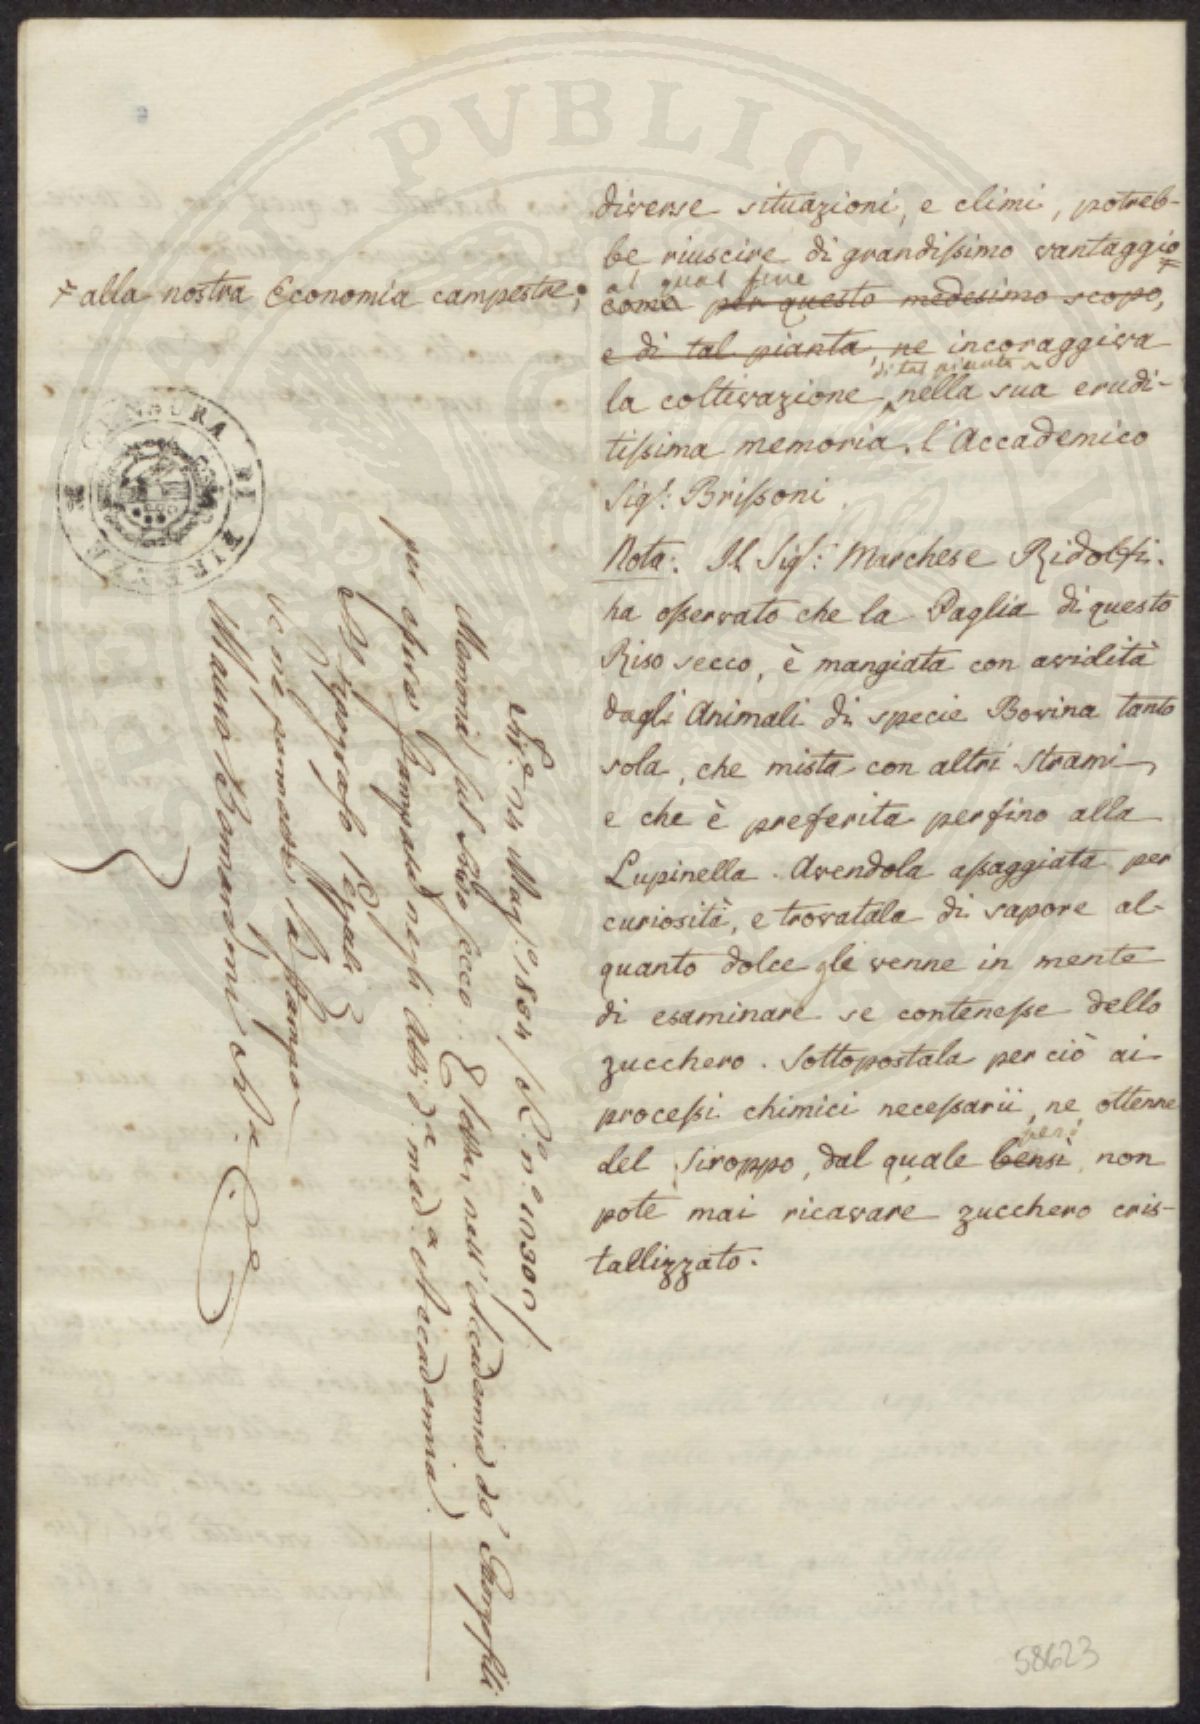 diverse situazioni, e climi, potreb-
be riuscire di grandissimo vantaggio
⌿ alla nostra Economia campestre;
al qual fine
come per questo medesimo scopo,
e di tal pianta, ne incoraggiva
di tal pianta
la coltivazione, nella sua erudi-
tissima memoria, l'Accademico
Sigr: Brissoni.
Nota: Il Sigr: Marchese Ridolfi.
ha osservato che la Paglia di questo
Riso secco, è mangiata con avidità
dagli Animali di specie Bovina tanto
sola, che mista con altri Strami,
e che è preferita perfino alla
Lupinella. Avendola assaggiata per
curiosità, e trovatala di sapore al-
quanto dolce gli venne in mente
di esaminare se contenesse dello
zucchero. Sottopostala per ciò ai
processi chimici necessarii, ne ottenne
però
del Siroppo, dal quale bensì, non
pote mai ricavare zucchero cris-
tallizzato.
CENSURA DI FIRENZE
Memoria sul Riso secco. E letta, nell'Accademia de' Georgofili
per essere stampata negli Atti d.a med.a Accademia.
Tipografo Pezzati
Se ne permette la stampa
Mauro Bernardini
58623
PVBLIC